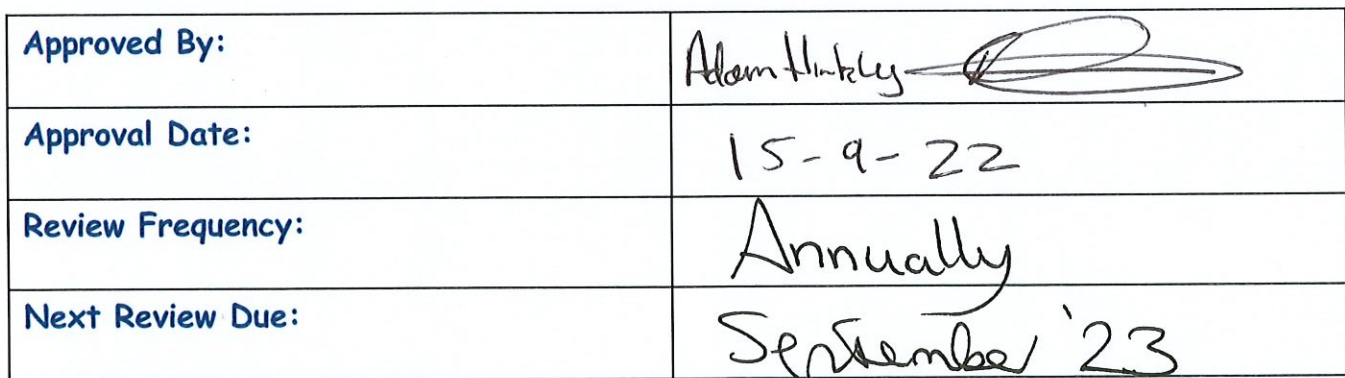 Approved By: Adam Hinkly
Approval Date: 15-9-22
Review Frequency: Annually
Next Review Due: September '23